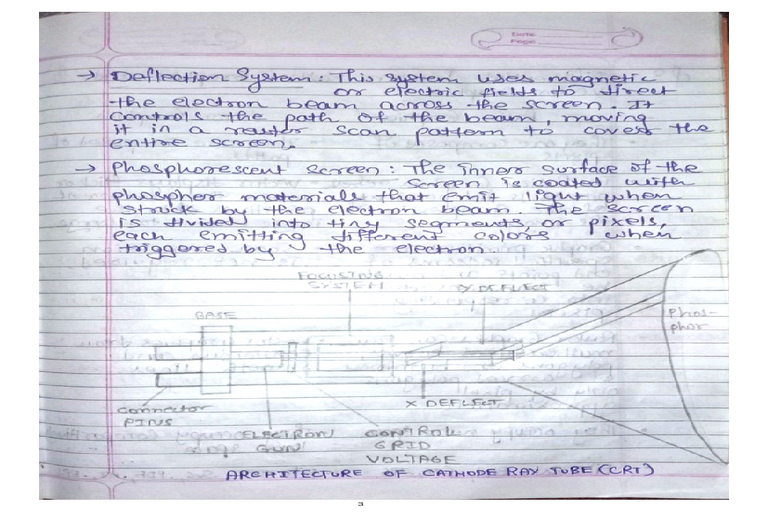 Date
Page
→ Deflection System: This system uses magnetic
or electric fields to direct
the electron beam across the screen. It
controls the path of the beam, moving
it in a raster scan pattern to cover the
entire screen.
→ Phosphorescent screen: The inner surface of the
screen is coated with
phosphor materials that emit light when
struck by the electron beam. The screen
is divided into tiny segments, or pixels,
each emitting different colors when
triggered by the electron.
FOCUSING
SYSTEM
Y DEFLECT
BASE
Phos-
phor
X DEFLECT
Connector
PINS
ELECTRON
GUN
CONTROL
GRID
VOLTAGE
ARCHITECTURE OF CATHODE RAY TUBE (CRT)
3